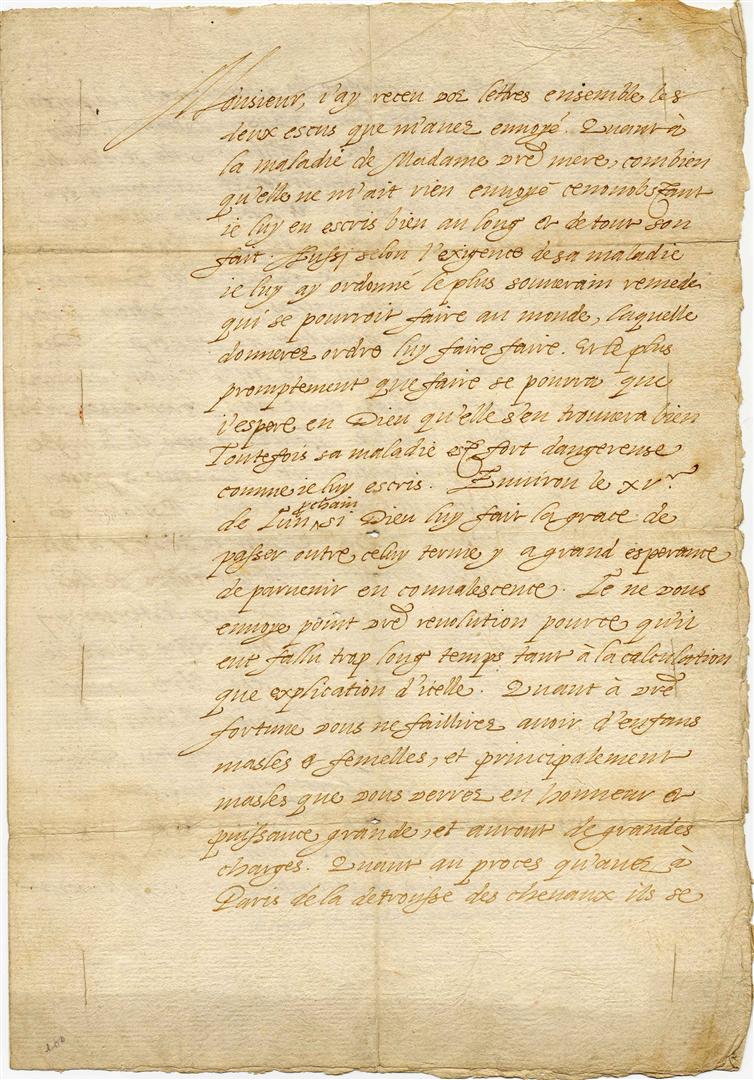 Monsieur, i'ay receu voz lettres ensemble les
deux escus que m'auez enuoyé. Quant à
la maladie de Madame vr̃e mere, combien
qu'elle ne m'ait rien enuoyé cenonobstant
ie luy en escris bien au long & de tout son
fait. Aussi selon l'exigence de sa maladie
ie luy ay ordonné le plus souuerain remede
qui se pourroit faire au monde, laquelle
donnerez ordre luy faire faire. Et le plus
promptement que faire se pourra que
i'espere en Dieu qu'elle s'en trouuera bien
Toutefois sa maladie est fort dangereuse
comme ie luy escris. Enuiron le xv.
pchain
de Iun si Dieu luy fait la grace de
passer outre celuy terme y a grand esperance
de paruenir en conualescence. Ie ne vous
enuoye point vr̃e reuolution pource qu'il
eut fallu trop long temps tant à la calculation
que explication d'icelle. Quant à vr̃e
fortune vous ne faillirez auoir d'enfans
masles & femelles, et principalement
masles que vous verrez en honneur &
puissance grande, et auront de grandes
charges. Quant au proces qu'auez à
Paris de la detrousse des cheuaux ils se